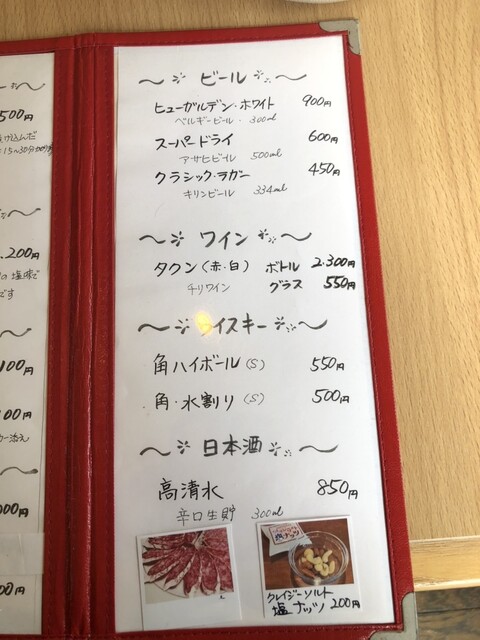 500円
.200円
です
100円
100円
000円
00円
ビール
ヒューガルデン・ホワイト 900円
ベルギービール・ 300ml
スーパードライ 600円
アサヒビール 500ml
クラシック・ラガー 450円
キリンビール 334ml
ワイン
タクン(赤・白) ボトル 2.300円
チリワイン グラス 550円
イスキー
角ハイボール(S) 550円
角・水割り(S) 500円
日本酒
高清水 850円
辛口生貯 300ml
クレイジーソルト
塩ナッツ 200円